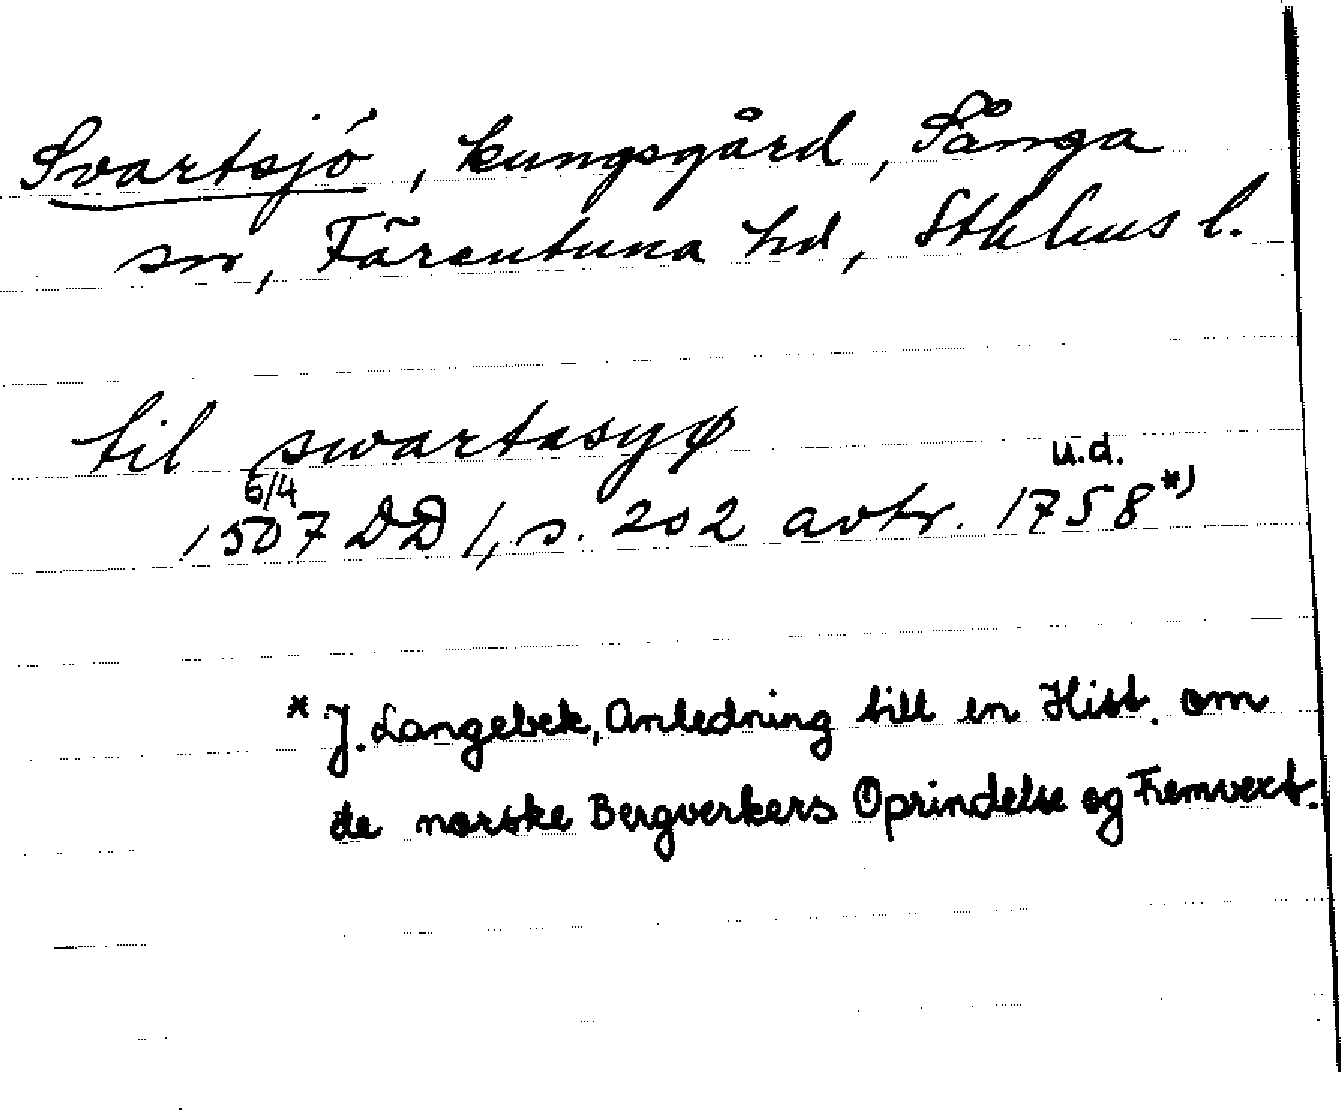 Svartsjö, kungsgård, Sånga
sn, Färentuna hd, Sthlms l.
til swartasyø
6/4
1507 DD 1, s. 202 avtr. 1758 u.d. *)
* J. Langebek, Anledning till en Hist. om
de norske Bergverkers Oprindelse og Fremvext.